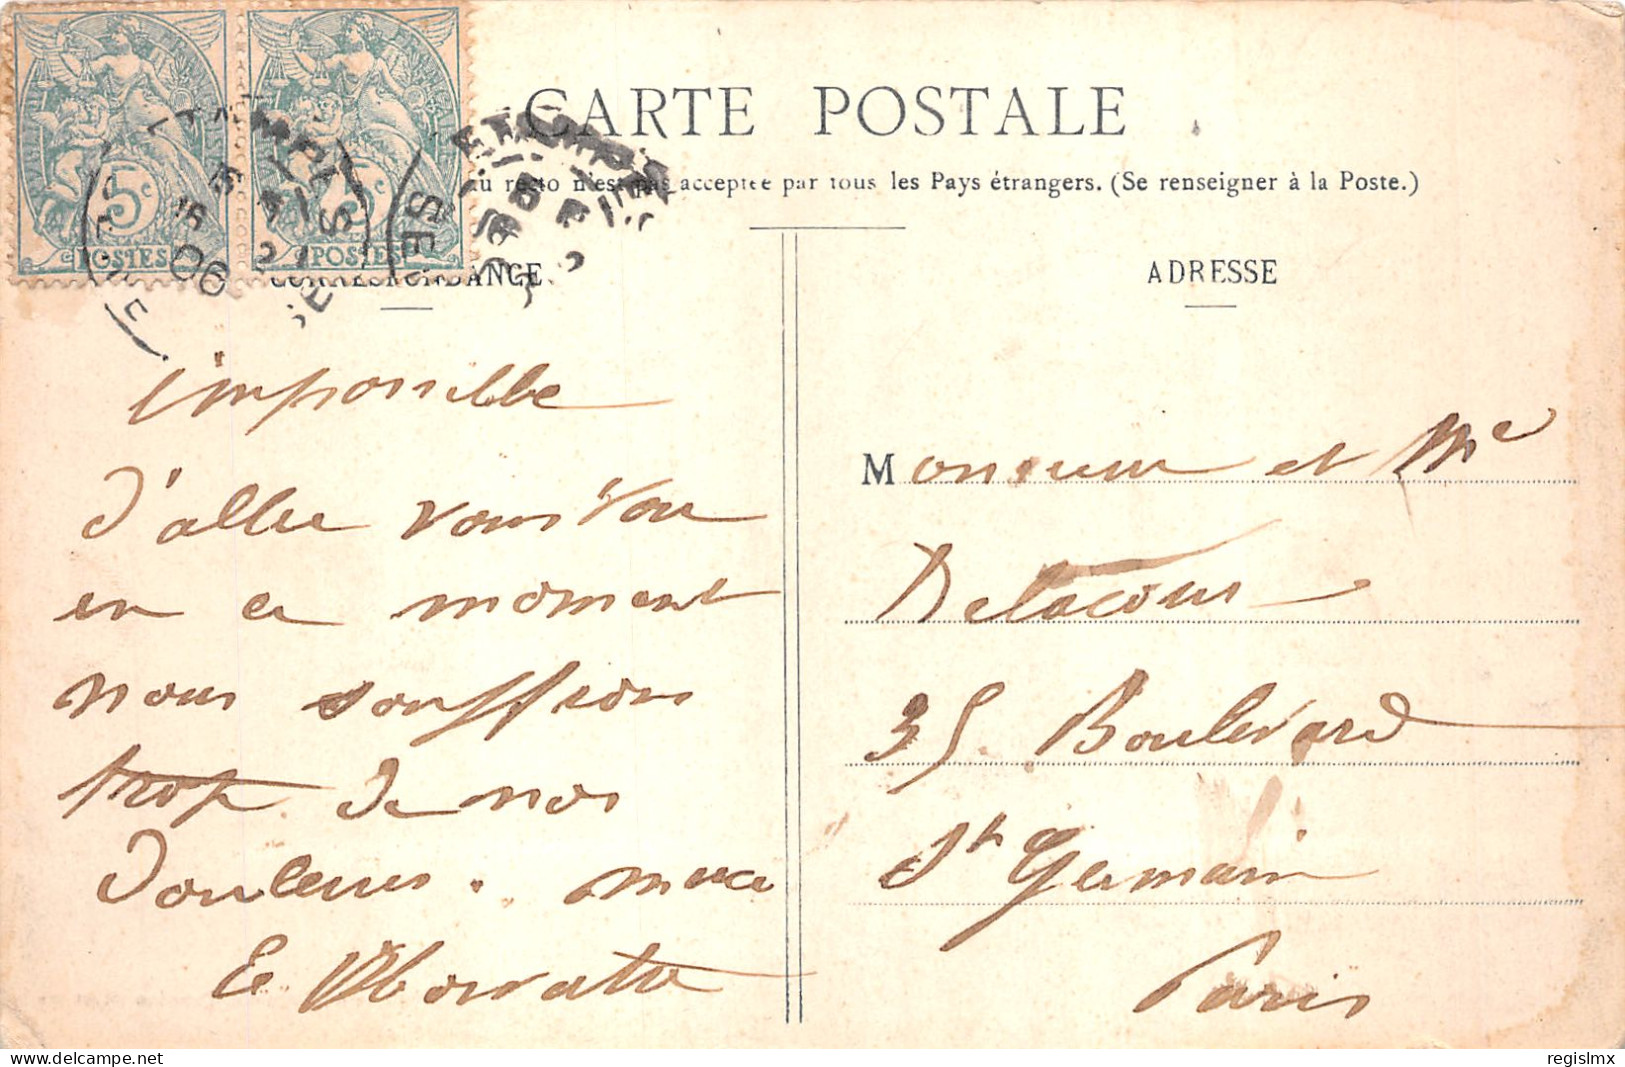 CARTE POSTALE
au recto n'est pas acceptée par tous les Pays étrangers. (Se renseigner à la Poste.)
CORRESPONDANCE
ADRESSE
5c
POSTES
5c
POSTES
06
impossible
d'aller vous voir
en ce moment
nous souffrons
trop de nos
douleurs. merci
Monsieur et Me
Delacour
35 Boulevard
St Germain
Paris
regislmx